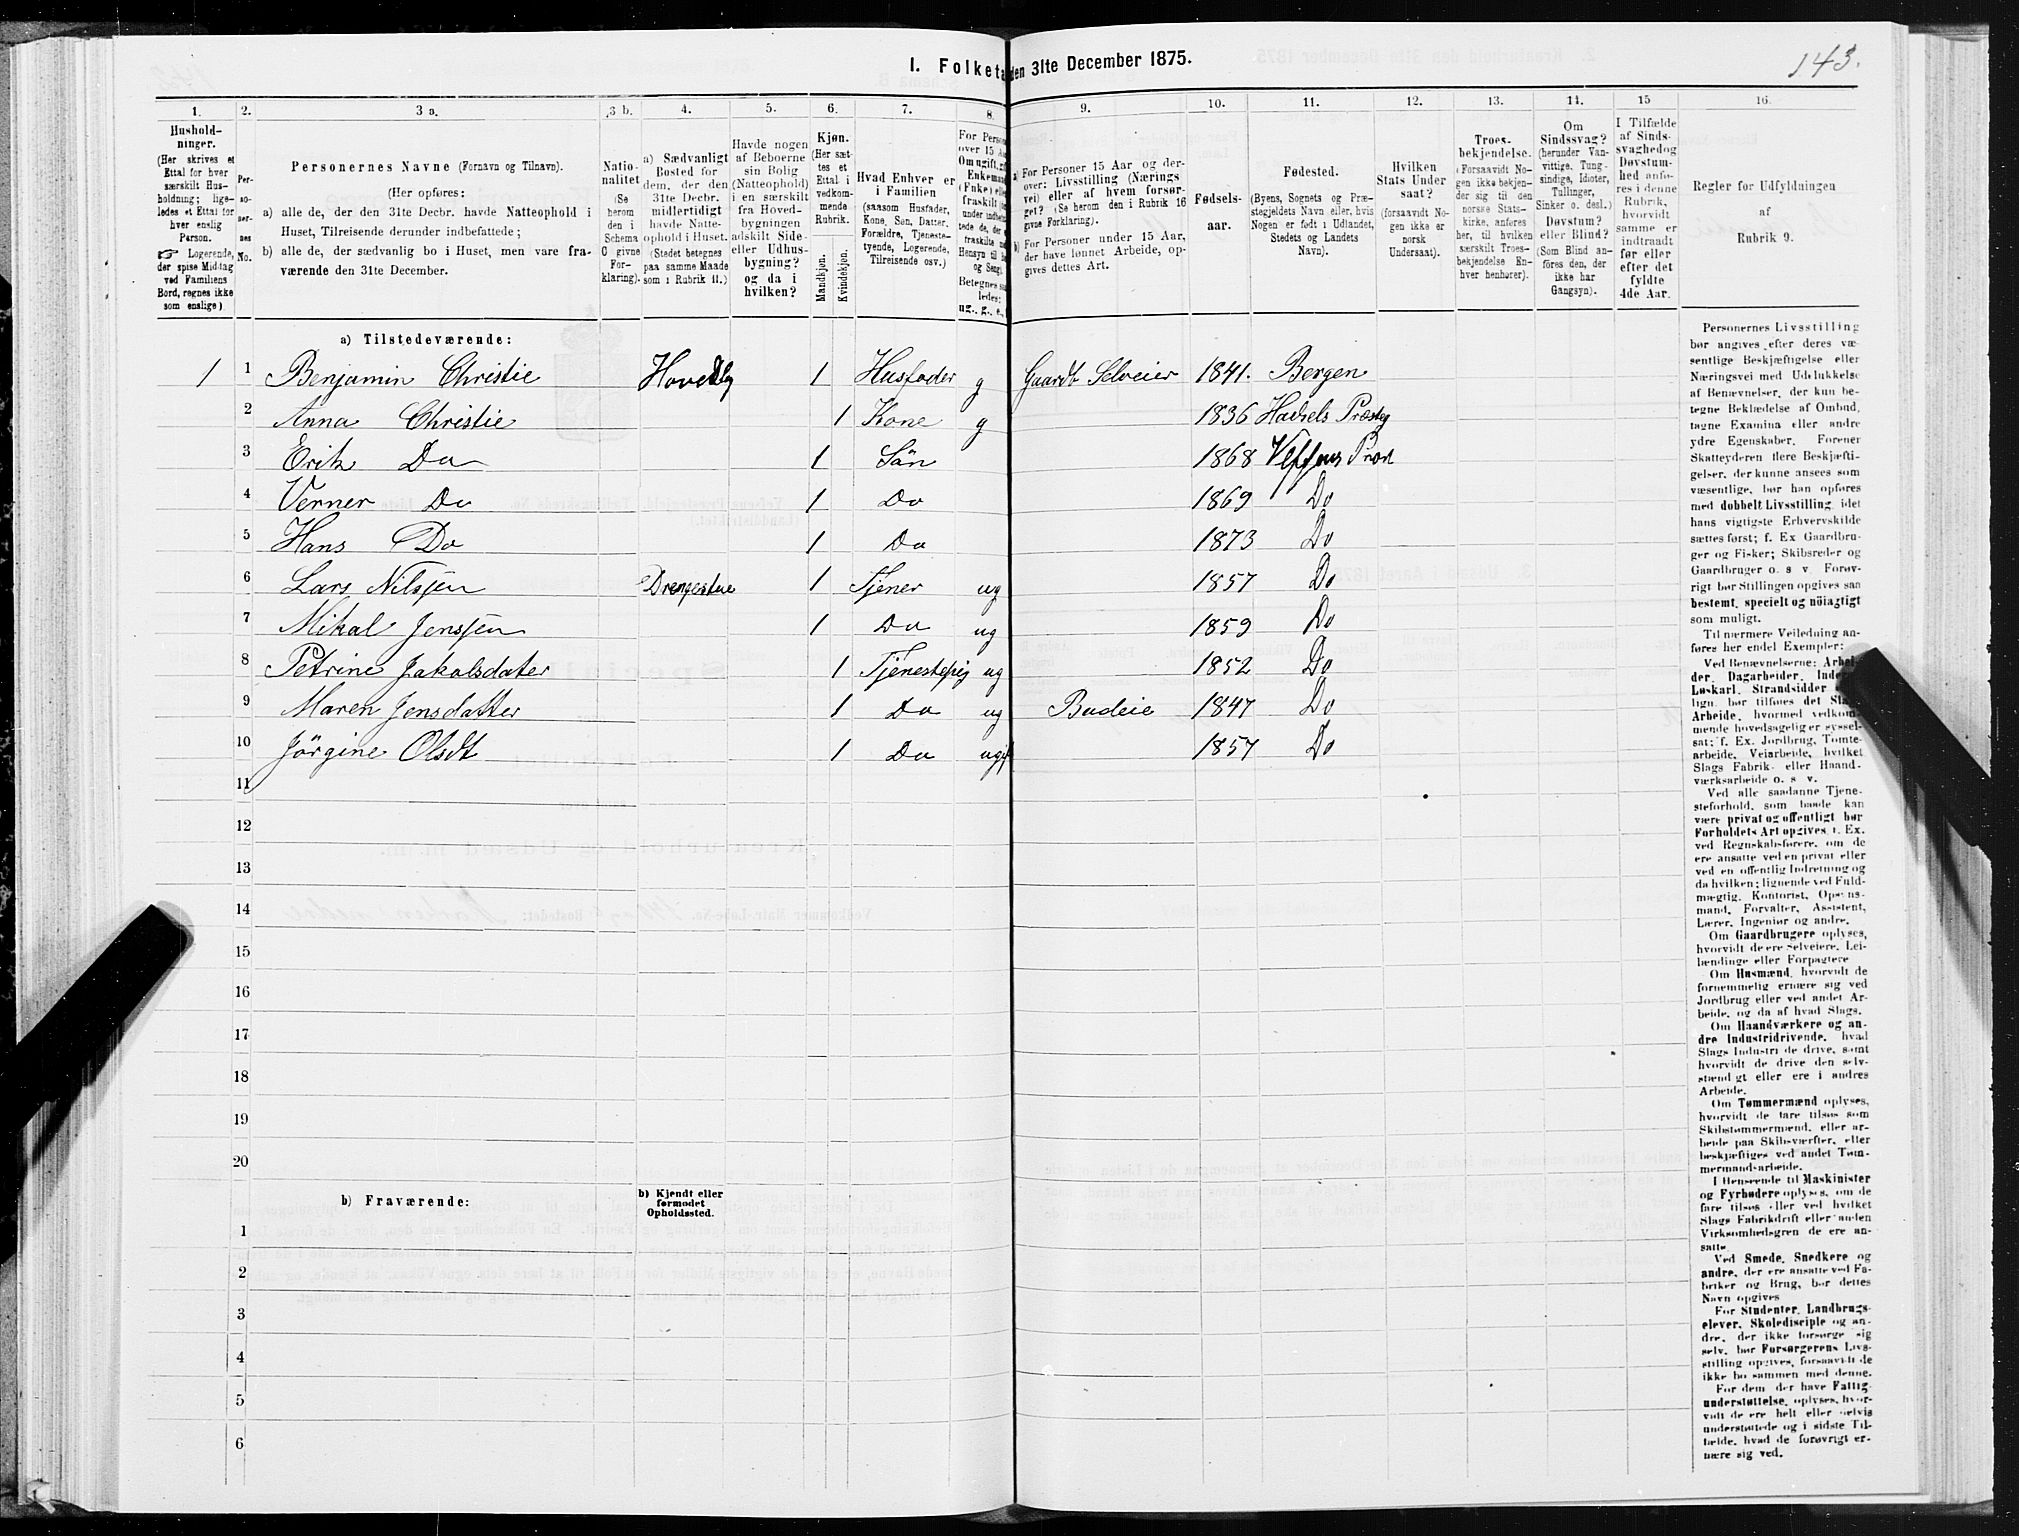 I. Folketæ
den 31te December 1875.
143.
1. 2. 3 a. 3 b. 4. 5. 6. 7. 8. 9. 10. 11. 12. 13. 14. 15 16.
Hushold-
ninger.
(Her skrives et
Ettal for hver
særskilt Hus-
holdning; lige-
ledes et Ettal for
hver enslig
Person.
☞ Logerende,
der spise Middag
ved Familiens
Bord, regnes ikke
som enslige).
Per-
so-
ner-
nes
No.
Personernes Navne (Fornavn og Tilnavn).
(Her opføres:
a) alle de, der den 31te Decbr. havde Natteophold i
Huset, Tilreisende derunder indbefattede;
b) alle de, der sædvanlig bo i Huset, men vare fra-
værende den 31te December.
Natio-
nalitet
(Se
herom
den i
Schema
O givne
For-
klaring).
a) Sædvanligt
Bosted for
dem, der den
31te Decbr.
midlertidigt
havde Natte-
ophold i Huset.
(Stedet betegnes
paa samme Maade
som i Rubrik 11.)
Havde nogen
af Beboerne
sin Bolig
(Natteophold)
i en særskilt
fra Hoved-
bygningen
adskilt Side-
eller Udhus-
bygning?
og da i
hvilken?
Kjøn.
(Her sæt-
tes et
Ettal i
vedkom-
mende
Rubrik.
Mandkjøn.
Kvindekjøn.
Hvad Enhver er
i Familien
(saasom Husfader,
Kone, Søn, Datter,
Forældre, Tjeneste-
tyende, Logerende,
Tilreisende osv.)
For Person
over 15 Aa
Om ugift, gi
Enkeman
(Enke) elle
fraskilt
Betegnes sa
ledes:
ug., g., e.,
a) For Personer 15 Aar og der-
over: Livsstilling (Nærings
vei) eller af hvem forsør-
get? (Se herom den i Rubrik 16
givne Forklaring).
b) For Personer under 15 Aar,
der have lønnet Arbeide, op-
gives dettes Art.
Fødsels-
aar.
Fødested.
(Byens, Sognets og Præ-
stegjeldets Navn eller, hvis
Nogen er født i Udlandet,
Stedets og Landets
Navn).
Hvilken
Stats Under
saat?
(forsaavidt No-
gen ikke er
norsk
Undersaat).
Troes-
bekjendelse.
(Forsaavidt No-
gen ikke bekjen-
der sig til den
norske Stats-
kirke, anføres
her, til hvilken
særskilt Troes-
bekjendelse En-
hver henhører).
Om
Sindssvag?
(herunder Van-
vittige, Tung-
sindige, Idioter,
Tullinger,
Sinker o. desl.)
Døvstum?
eller Blind?
(Som Blind an-
føres den, der
ikke har
Gangsyn).
I Tilfælde
af Sinds-
svaghed og
Døvstum-
hed anfø-
res i denne
Rubrik,
hvorvidt
samme er
indtraadt
før eller
efter det
fyldte
4de Aar.
Regler for Udfyldningen
af
Rubrik 9.
a) Tilstedeværende:
1 1 Benjamin Christie Hovedbg 1 Husfader g Gaardb Selveier 1841. Bergen
2 Anna Christie 1 Kone g 1836 Hadsels Præsteg
3 Erik Do 1 Sön 1868 Vefsens Præst
4 Verner Do 1 Do 1869 Do
5 Hans Do 1 Do 1873 Do
6 Lars Nilssen Drengestue 1 Tjener ug 1857 Do
7 Mikal Jenssen 1 Do ug 1859 Do
8 Petrine Jakobsdater 1 Tjenestepig ug 1852 Do
9 Maren Jensdatter 1 Do ug Budeie 1847 Do
10 Jörgine Olsdt 1 Do ugif 1857 Do
11
12
13
14
15
16
17
18
19
20
b) Fraværende:
b) Kjendt eller
formodet
Opholdssted.
1
2
3
4
5
6
Personernes Livsstilling
bør angives efter deres væ-
sentlige Beskjæftigelse eller
Næringsvei med Udelukkelse
af Benævnelser, der kun be-
tegne Beklædelse af Ombud,
tagne Examina eller andre
ydre Egenskaber. Forener
Skatteyderen flere Beskjæfti-
gelser, der kunne ansees som
væsentlige, bør han opføres
med dobbelt Livsstilling, idet
hans vigtigste Erhvervskilde
sættes først; f. Ex Gaardbru-
ger og Fisker; Skibsreder og
Gaardbruger o. s v. Forøv-
rigt bør Stillingen opgives saa
bestemt, specielt og nøiagtigt
som muligt.
Til nærmere Veiledning an-
føres her endel Exempler:
Ved Benævnelserne: Arbei-
der, Dagarbeider, Inder
Løskarl, Strandsidder
lign. bør tilføies det Slag
Arbeide, hvormed vedkom-
mende hovedsagelig er syssel-
sat; f. Ex. Jordbrug, Tømte-
arbeide, Veiarbeide, hvilket
Slags Fabrik- eller Haand-
værksarbeide o. s v.
Ved alle saadanne Tjene-
steforhold, som baade kan
være privat og offentligt bør
Forholdets Art opgives, t. Ex.
ved Regnskabsførere, om de
ere ansatte ved en privat eller
ved en offentlig Indretning og
da hvilken; lignende ved Fuld-
mægtig, Kontorist, Opsyns-
mand, Forvalter, Assistent,
Lærer, Ingeniør og andre.
Om Gaardbrugere oplyses,
hvorvidt de ere Selveiere, Lei-
lændinge eller Forpagtere
Om Husmænd, hvorvidt de
fornemmelig ernære sig ved
Jordbrug eller ved andet Ar-
beide, og da af hvad Slags.
Om Haandværkere og an-
dre Industridrivende, hvad
Slags Industri de drive, samt
hvorvidt de drive den selv-
stændigt eller ere i andres
Arbeide.
Om Tømmermænd oplyses,
hvorvidt de fare tilsøs som
Skibstømmermænd, eller ar-
beide paa Skibsværfter, eller
beskjæftiges ved andet Tøm-
mermandsarbeide.
I Henseende til Maskinister
og Fyrbødere oplyses, om de
fare tilsøs eller ved hvilket
Slags Fabrikdrift eller anden
Virksomhedsgren de ere an-
satte.
Ved Smede, Snedkere og
andre, der ere ansatte ved Fa-
briker og Brug, bør dettes
Navn opgives
For Studenter, Landbrugs-
elever, Skoledisciple og an-
dre, der ikke forsørge sig
selv, bør Forsørgerens Livs-
stilling opgives, forsaavidt de
ikke bo sammen med denne.
For dem, der have Fattig-
understøttelse, oplyses, hvor-
vidt de ere helt eller delvis
understøttede og i sidste Til-
fælde, hvad de forøvrigt er-
nære sig ved.